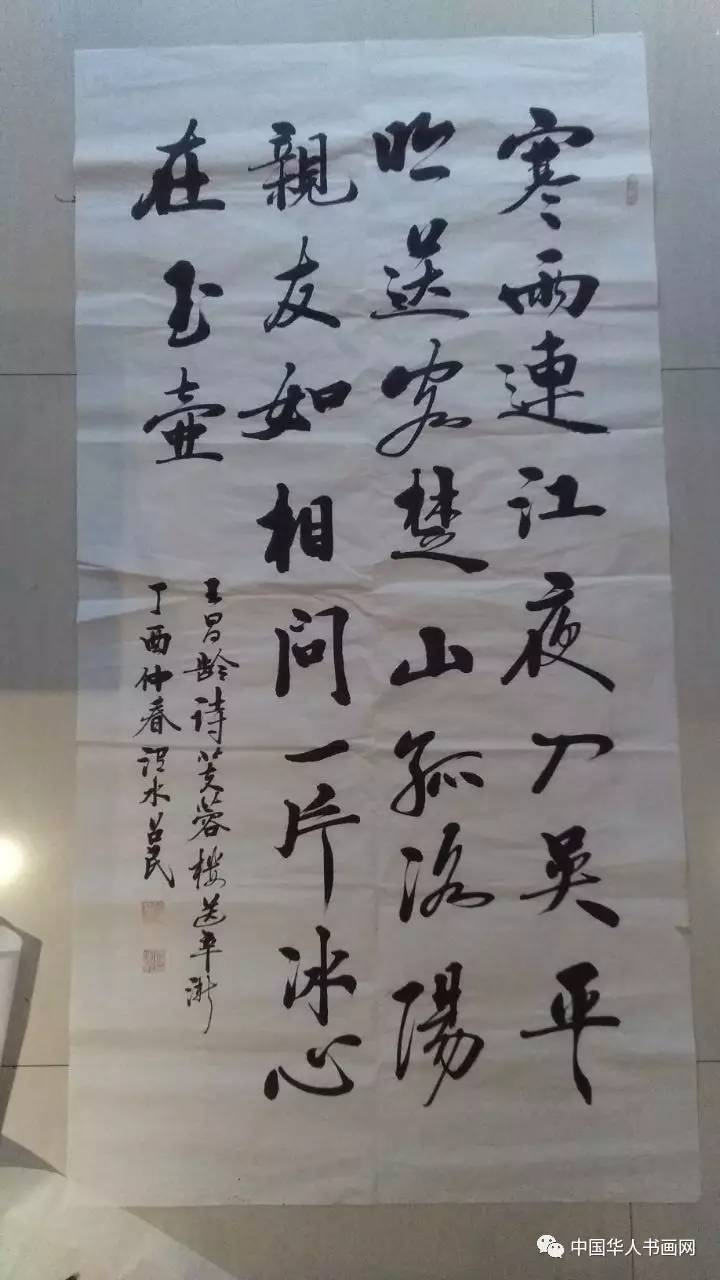 寒雨連江夜入吳平
明送客楚山孤洛陽
親友如相問一片冰心
在玉壺
王昌齡诗芙蓉樓送辛漸
丁酉仲春 水吕民
中国华人书画网